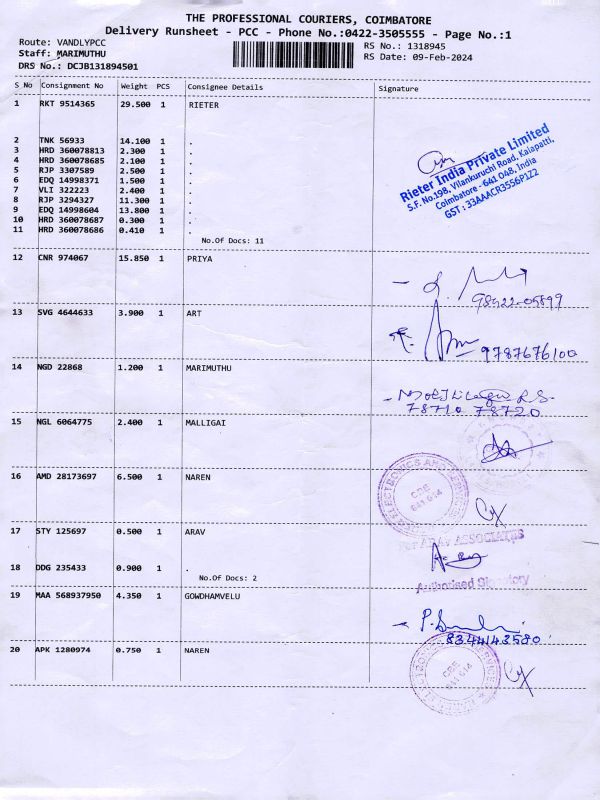 THE PROFESSIONAL COURIERS, COIMBATORE
Delivery Runsheet - PCC - Phone No.:0422-3505555 - Page No.:1
Route: VANDLYPCC
RS No.: 1318945
Staff: MARIMUTHU
RS Date: 09-Feb-2024
DRS No.: DCJB131894501
S No Consignment No Weight PCS Consignee Details Signature
1 RKT 9514365 29.500 1 RIETER
2 TNK 56933 14.100 1 .
3 HRD 360078813 2.300 1 .
4 HRD 360078685 2.100 1 .
5 RJP 3307589 2.500 1 .
6 EDQ 14998371 1.500 1 .
7 VLI 322223 2.400 1 .
8 RJP 3294327 11.300 1 .
9 EDQ 14998604 13.800 1 .
10 HRD 360078687 0.300 1 .
11 HRD 360078686 0.410 1 .
No.Of Docs: 11
Rieter India Private Limited
S.F. No.198, Vilankuruchi Road, Kalapatti,
Coimbatore - 641 048, India
GST : 33AAACR3556P1Z2
12 CNR 974067 15.850 1 PRIYA
98422-05899
13 SVG 4644633 3.900 1 ART
9787676100
14 NGD 22868 1.200 1 MARIMUTHU
78710 78720
15 NGL 6064775 2.400 1 MALLIGAI
16 AMD 28173697 6.500 1 NAREN
ELECTRONICS AND
CBE
641 014
17 STY 125697 0.500 1 ARAV
For ARAV ASSOCIATES
18 DDG 235433 0.900 1 .
No.Of Docs: 2
Authorised Signatory
19 MAA 568937950 4.350 1 GOWDHAMVELU
8344143580
20 APK 1280974 0.750 1 NAREN
CBE
641 014